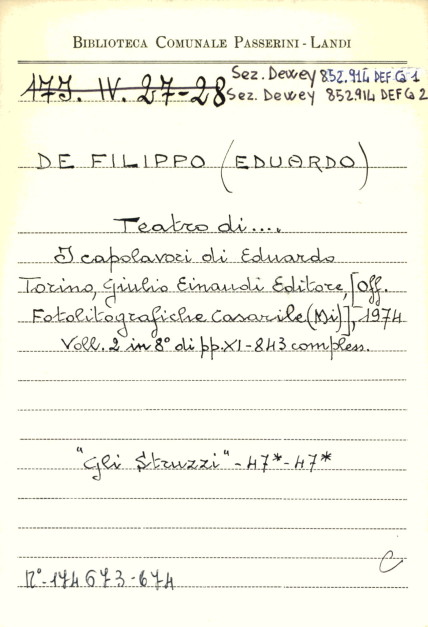 BIBLIOTECA COMUNALE PASSERINI-LANDI
17J. IV. 27-28 Sez. Dewey 852.914 DEF G 1
Sez. Dewey 852914 DEF G 2
DE FILIPPO (EDUARDO)
Teatro di....
I capolavori di Eduardo
Torino, Giulio Einaudi Editore, [Off.
Fotolitografiche Casarile (Mi)], 1974
Voll. 2 in 8° di pp. XI-843 compless.
"Gli Struzzi" - 47* - 47*
C
N° - 174673 - 674